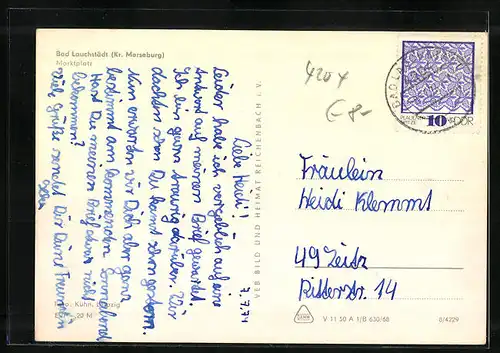 Bad Lauchstädt (Kr. Merseburg)
Marktplatz
Liebe Heidi!
Leider habe ich vergeblich auf eine
Antwort auf meinen Brief gewartet.
Ich bin ganz traurig darüber. Wir
dachten schon Du kommst schon gestern.
Nun erwarten wir Dich aber ganz
bestimmt am kommenden Sonnabend.
Hast Du meinen Brief etwa nicht
bekommen?
Viele Grüße sendet Dir Deine Freundin
Foto: Kuhn, Leipzig
20 M
VEB BILD UND HEIMAT REICHENBACH i. V.
4204
€ 8-
BAD LA
PLAUENER
SPITZE
10 DDR
Fräulein
Heidi Klemmt
49 Zeitz
Ritterstr. 14
V 11 50 A 1/B 630/68
8/4229